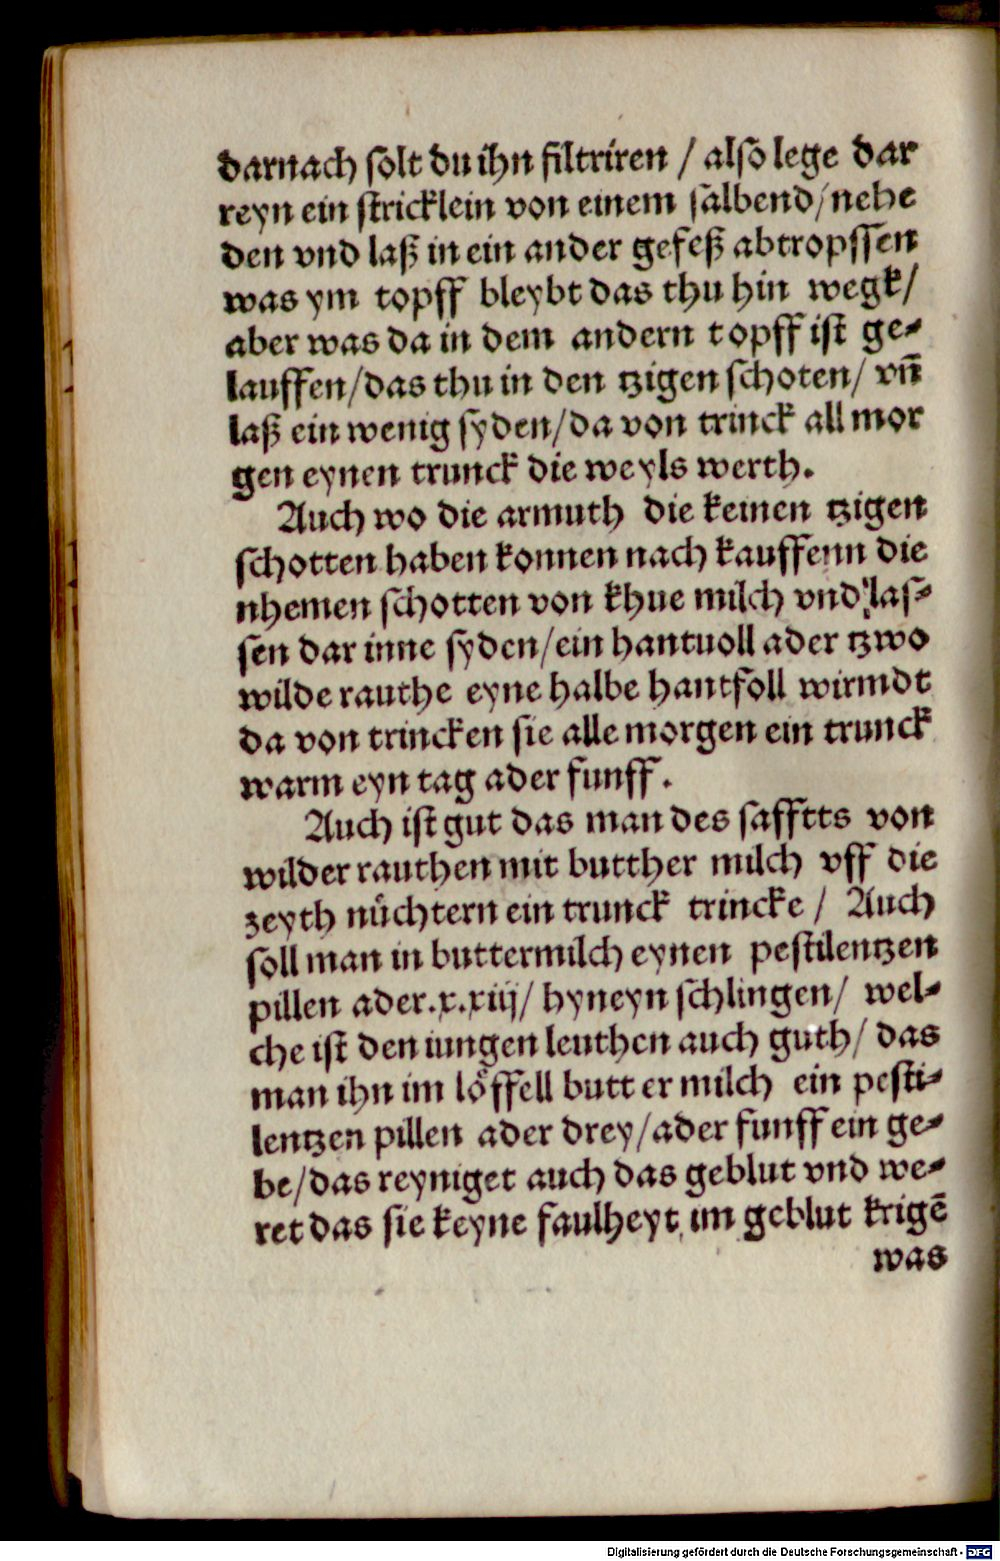 darnach solt du ihn filtriren / also lege dar
reyn ein stricklein von einem salbend/nehe
den vnd laß in ein ander gefeß abtropssen
was ym topff bleybt das thu hin wegk/
aber was da in dem andern topff ist ge-
lauffen/das thu in den tzigen schoten/ vn̄
laß ein wenig syden/da von trinck all mor
gen eynen trunck die weyls werth.
Auch wo die armuth die keinen tzigen
schotten haben konnen nach kauffenn die
nhemen schotten von khue milch vnd las-
sen dar inne syden/ein hantuoll ader tzwo
wilde rauthe eyne halbe hantfoll wirmdt
da von trincken sie alle morgen ein trunck
warm eyn tag ader funff.
Auch ist gut das man des safftts von
wilder rauthen mit butther milch vff die
zeyth nüchtern ein trunck trincke / Auch
soll man in buttermilch eynen pestilentzen
pillen ader.x.xiij/ hyneyn schlingen/ wel-
che ist den iungen leuthen auch guth/ das
man ihn im löffell butt er milch ein pesti-
lentzen pillen ader drey/ader funff ein ge-
be/das reyniget auch das geblut vnd we-
ret das sie keyne faulheyt im geblut krigē
was
Digitalisierung gefördert durch die Deutsche Forschungsgemeinschaft - DFG